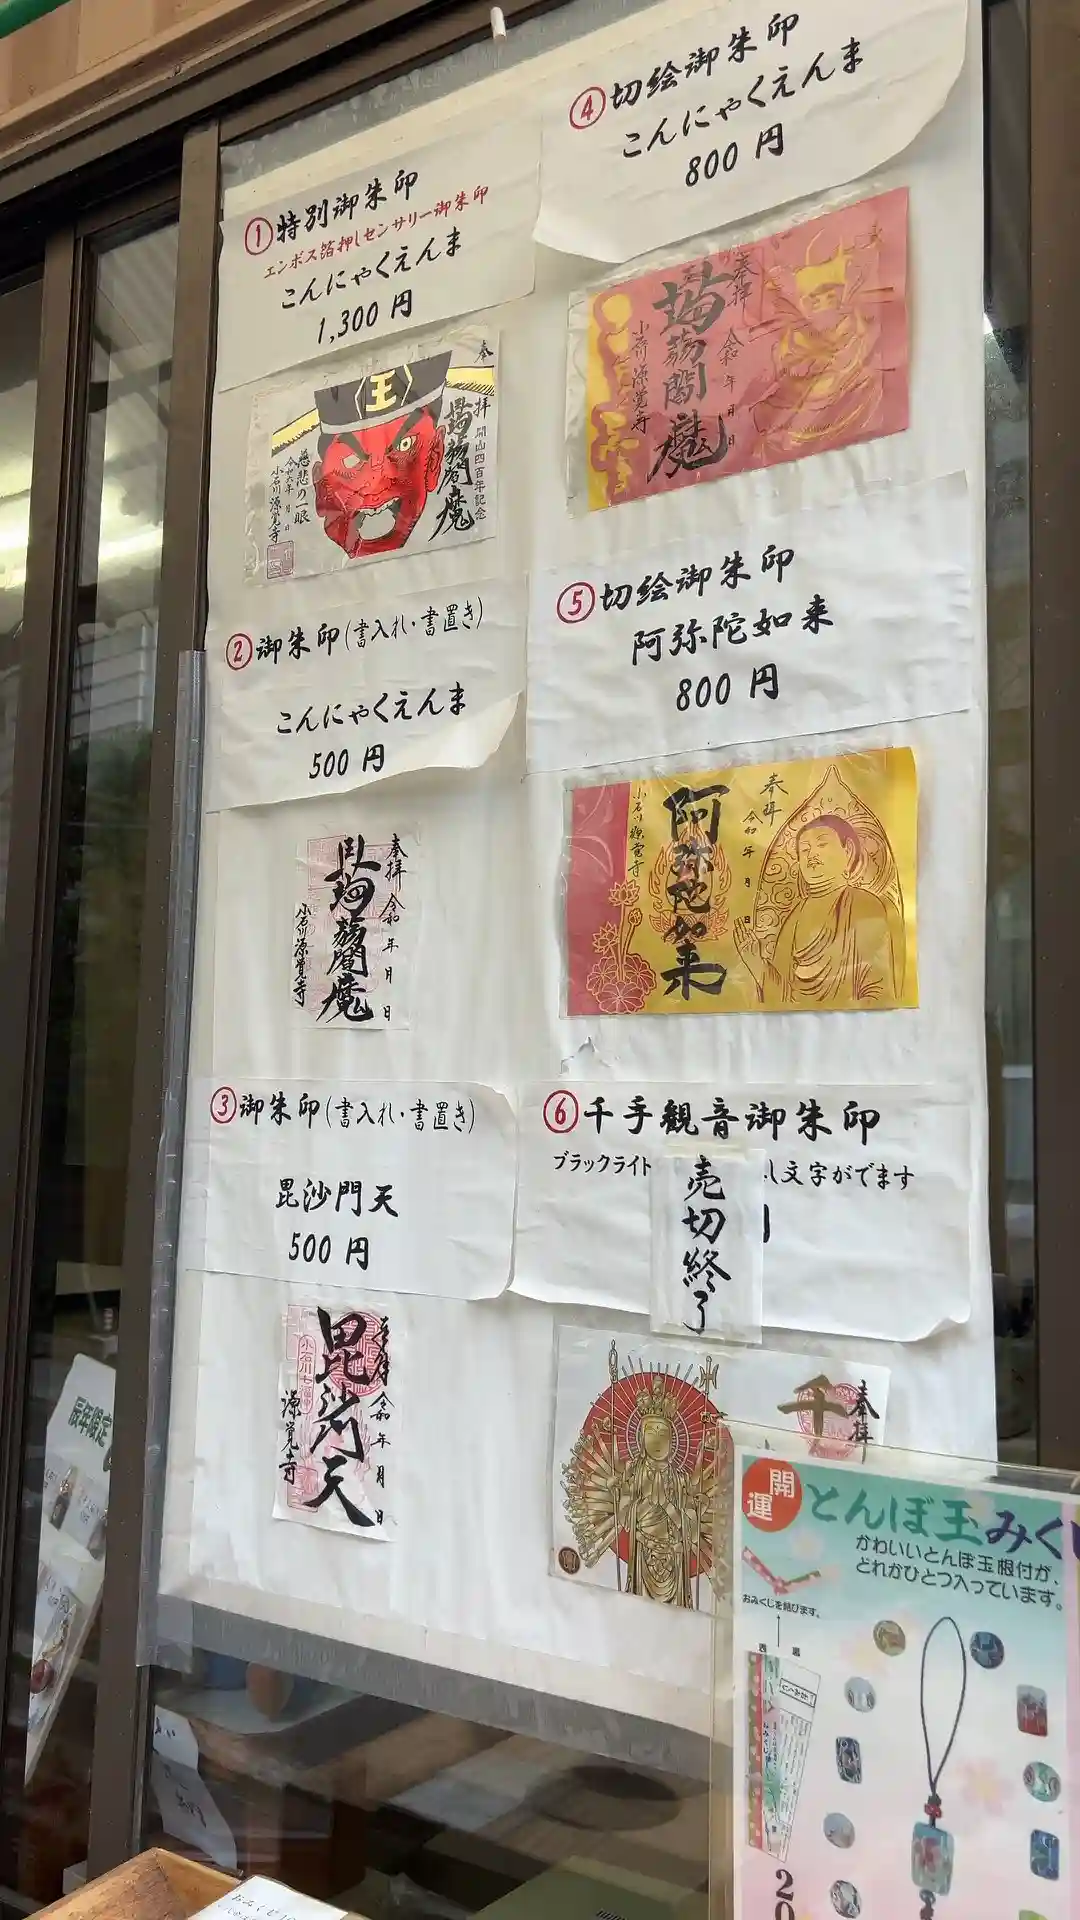 ①特別御朱印
エンボス箔押しセンサリー御朱印
こんにゃくえんま
1,300 円
奉拝
開山四百年記念
蒟蒻閻魔
王
慈悲の一眼
令和六年 月 日
小石川 源覚寺
②御朱印(書入れ・書置き)
こんにゃくえんま
500 円
奉拝 令和 年 月 日
蒟蒻閻魔
小石川源覚寺
③御朱印(書入れ・書置き)
毘沙門天
500 円
奉拝 令和 年 月 日
毘沙門天
源覚寺
④切絵御朱印
こんにゃくえんま
800 円
奉拝
令和 年 月 日
蒟蒻閻魔
小石川 源覚寺
⑤切絵御朱印
阿弥陀如来
800 円
奉拝
令和 年 月 日
阿弥陀如来
小石川 源覚寺
⑥千手観音御朱印
ブラックライト
し文字がでます
売切終了
奉拝
千
辰年限定
開運
とんぼ玉みく
かわいいとんぼ玉根付が、
どれかひとつ入っています。
おみくじを結びます。
20